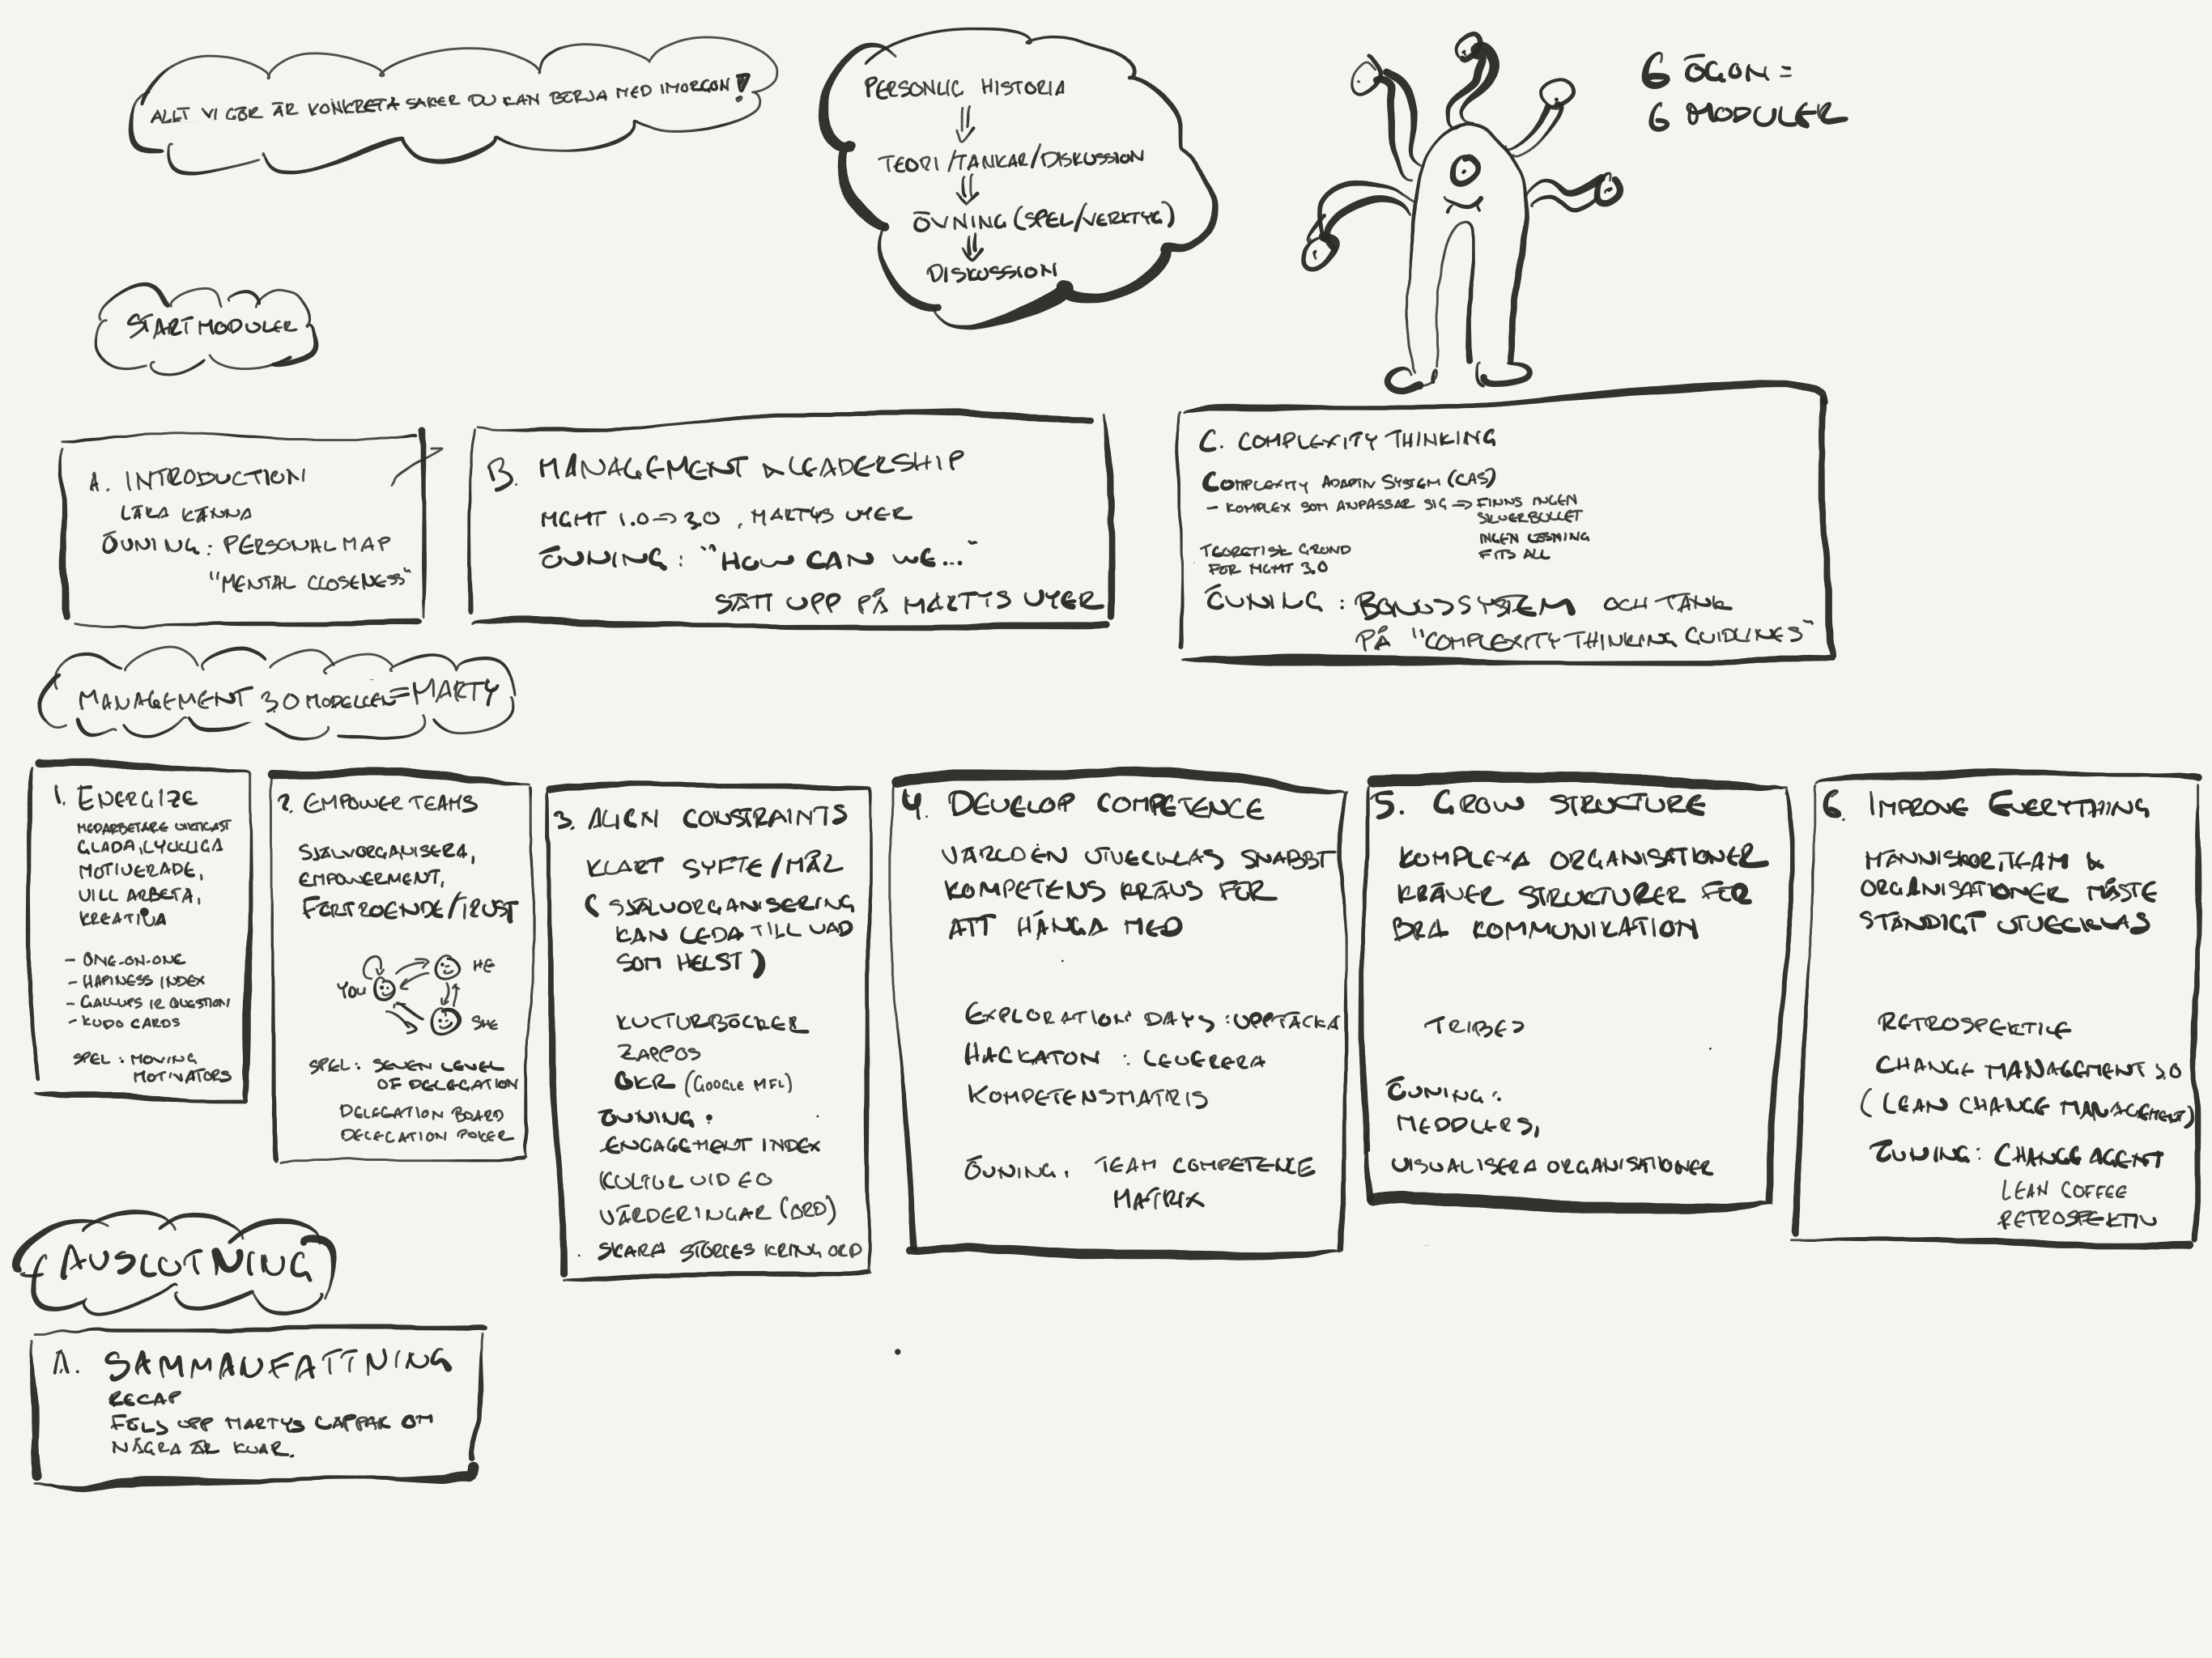 ALLT VI GÖR ÄR KONKRETA SAKER DU KAN BÖRJA MED IMORGON!
PERSONLIG HISTORIA
TEORI/TANKAR/DISKUSSION
ÖVNING (SPEL/VERKTYG)
DISKUSSION
6 ÖGON =
6 MODULER
STARTMODULER
A. INTRODUCTION
LÄRA KÄNNA
ÖVNING: PERSONAL MAP
"MENTAL CLOSENESS"
B. MANAGEMENT & LEADERSHIP
MGMT 1.0 => 3.0, MARTYS VYER
ÖVNING: "HOW CAN WE..."
SÄTT UPP PÅ MARTYS VYER
C. COMPLEXITY THINKING
COMPLEXITY ADAPTIV SYSTEM (CAS)
- KOMPLEX SOM ANPASSAR SIG => FINNS INGEN
SILVERBULLET
INGEN LÖSNING
FITS ALL
TEORETISK GRUND
FÖR MGMT 3.0
ÖVNING: BONUSSYSTEM OCH TÄNK
PÅ "COMPLEXITY THINKING GUIDLINES"
MANAGEMENT 3.0 MODELLEN = MARTY
1. ENERGIZE
MEDARBETARE VIKTIGAST
GLADA, LYCKLIGA
MOTIVERADE,
VILL ARBETA,
KREATIVA
- ONE-ON-ONE
- HAPINESS INDEX
- GALLUPS 12 QUESTION
- KUDO CARDS
SPEL: MOVING
MOTIVATORS
2. EMPOWER TEAMS
SJÄLVORGANISERA,
EMPOWERMENT,
FÖRTROENDE/TRUST
HE
YOU
SHE
SPEL: SEVEN LEVEL
OF DELEGATION
DELEGATION BOARD
DELEGATION POKER
3. ALIGN CONSTRAINTS
KLART SYFTE/MÅL
(SJÄLVORGANISERING
KAN LEDA TILL VAD
SOM HELST)
KULTURBÖCKER
ZAPPOS
OKR (GOOGLE MFL)
ÖVNING:
ENGAGEMENT INDEX
KULTUR VIDEO
VÄRDERINGAR (ORD)
SKAPA STORIES KRING ORD
4. DEVELOP COMPETENCE
VÄRLDEN UTVECKLAS SNABBT
KOMPETENS KRÄVS FÖR
ATT HÄNGA MED
EXPLORATION DAYS: UPPTÄCKA
HACKATON: LEVERERA
KOMPETENSMATRIS
ÖVNING: TEAM COMPETENCE
MATRIX
5. GROW STRUCTURE
KOMPLEXA ORGANISATIONER
KRÄVER STRUKTURER FÖR
BRA KOMMUNIKATION
TRIBES
ÖVNING:
MEDDLERS,
VISUALISERA ORGANISATIONER
6. IMPROVE EVERYTHING
MÄNNISKOR, TEAM &
ORGANISATIONER MÅSTE
STÄNDIGT UTVECKLAS
RETROSPEKTIVE
CHANGE MANAGEMENT 3.0
(LEAN CHANGE MANAGEMENT)
ÖVNING: CHANGE AGENT
LEAN COFFEE
RETROSPEKTIV
AVSLUTNING
A. SAMMANFATTNING
RECAP
FÖLJ UPP MARTYS LAPPAR OM
NÅGRA ÄR KVAR.